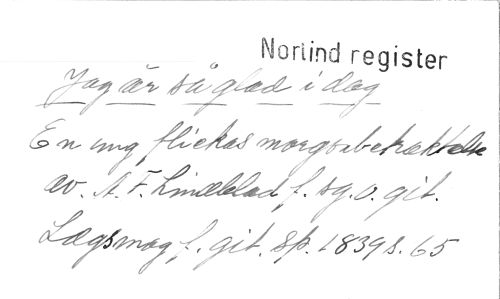 Norlind register
Jag är så glad i dag
En ung flickas morgonbetraktelse
av. A. F. Lindblad f. sg. o. git.
Lägsmag f. git. Sp. 1839 s. 65